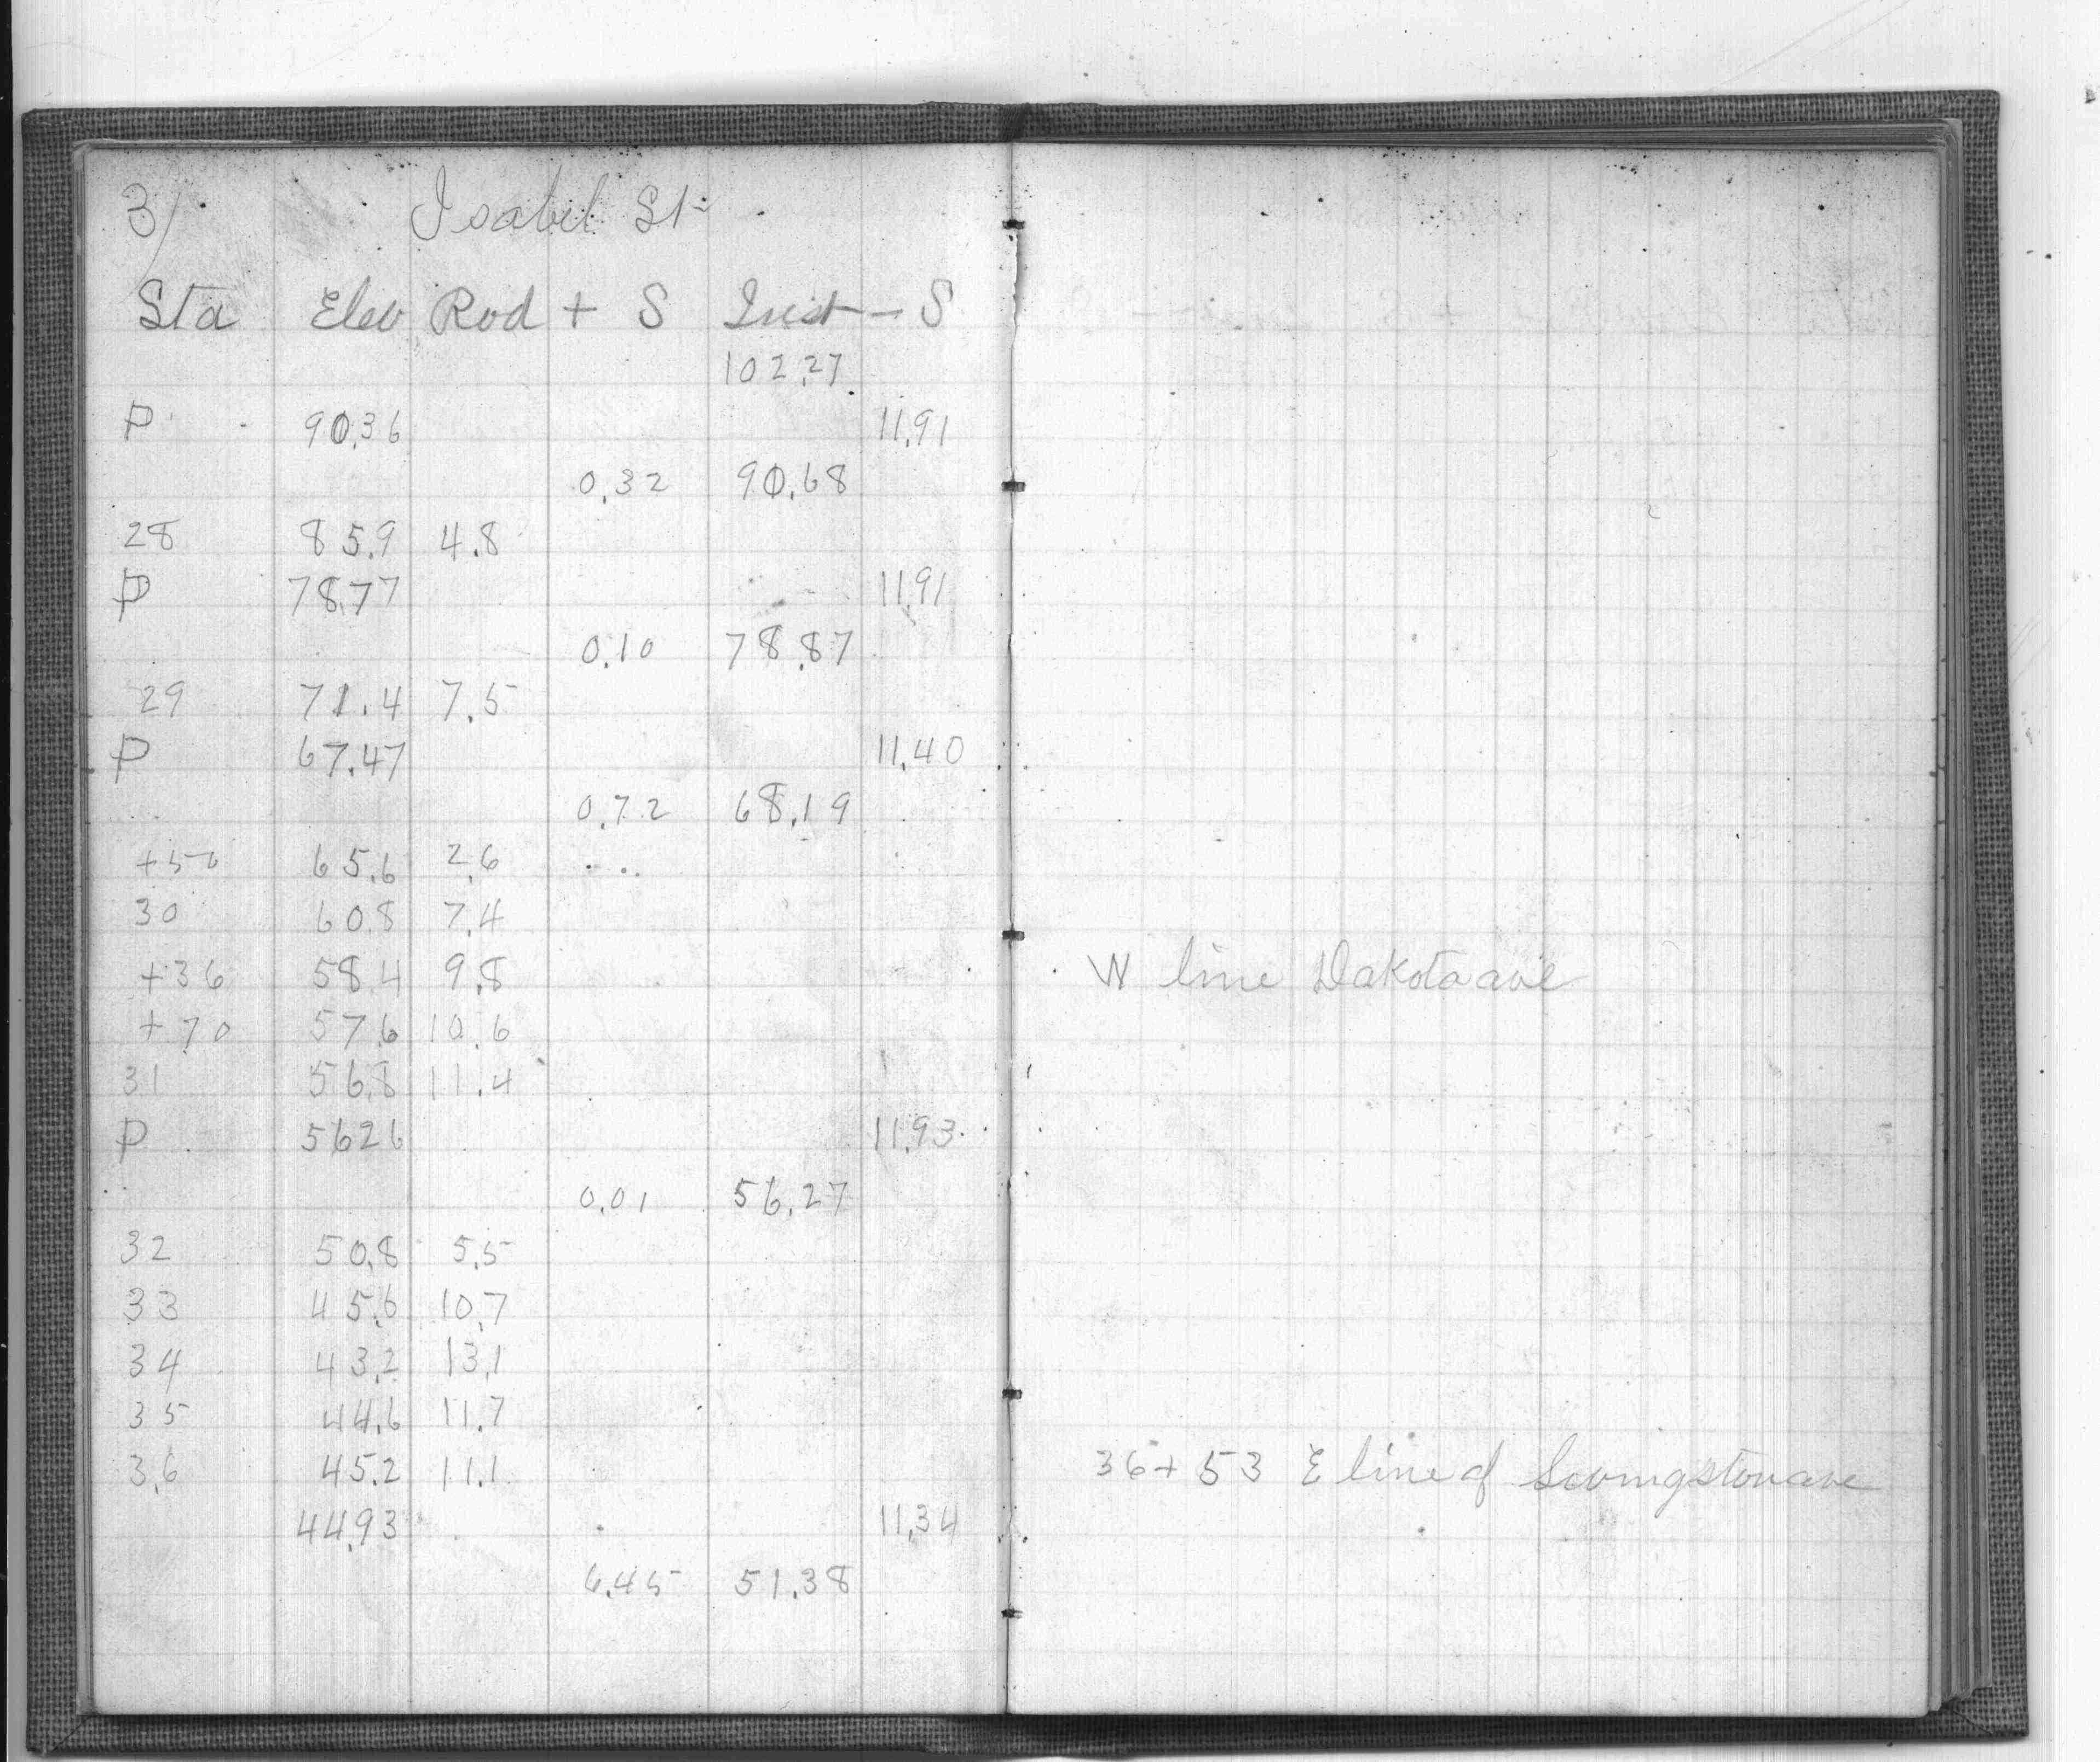 3/ Isabel St
Sta Elev Rod + S Inst - S
102.27
P 90.36 11.91
0.32 90.68
28 85.9 4.8
P 78.77 11.91
0.10 78.87
29 71.4 7.5
P 67.47 11.40
0.72 68.19
+50 65.6 2.6
30 60.8 7.4
+36 58.4 9.8 W line Dakota ave
+70 57.6 10.6
31 56.8 11.4
P 56.26 11.93
0.01 56.27
32 50.8 5.5
33 45.6 10.7
34 43.2 13.1
35 44.6 11.7
36 45.2 11.1 36+53 E line of Livingston ave
44.93 11.34
6.45 51.38